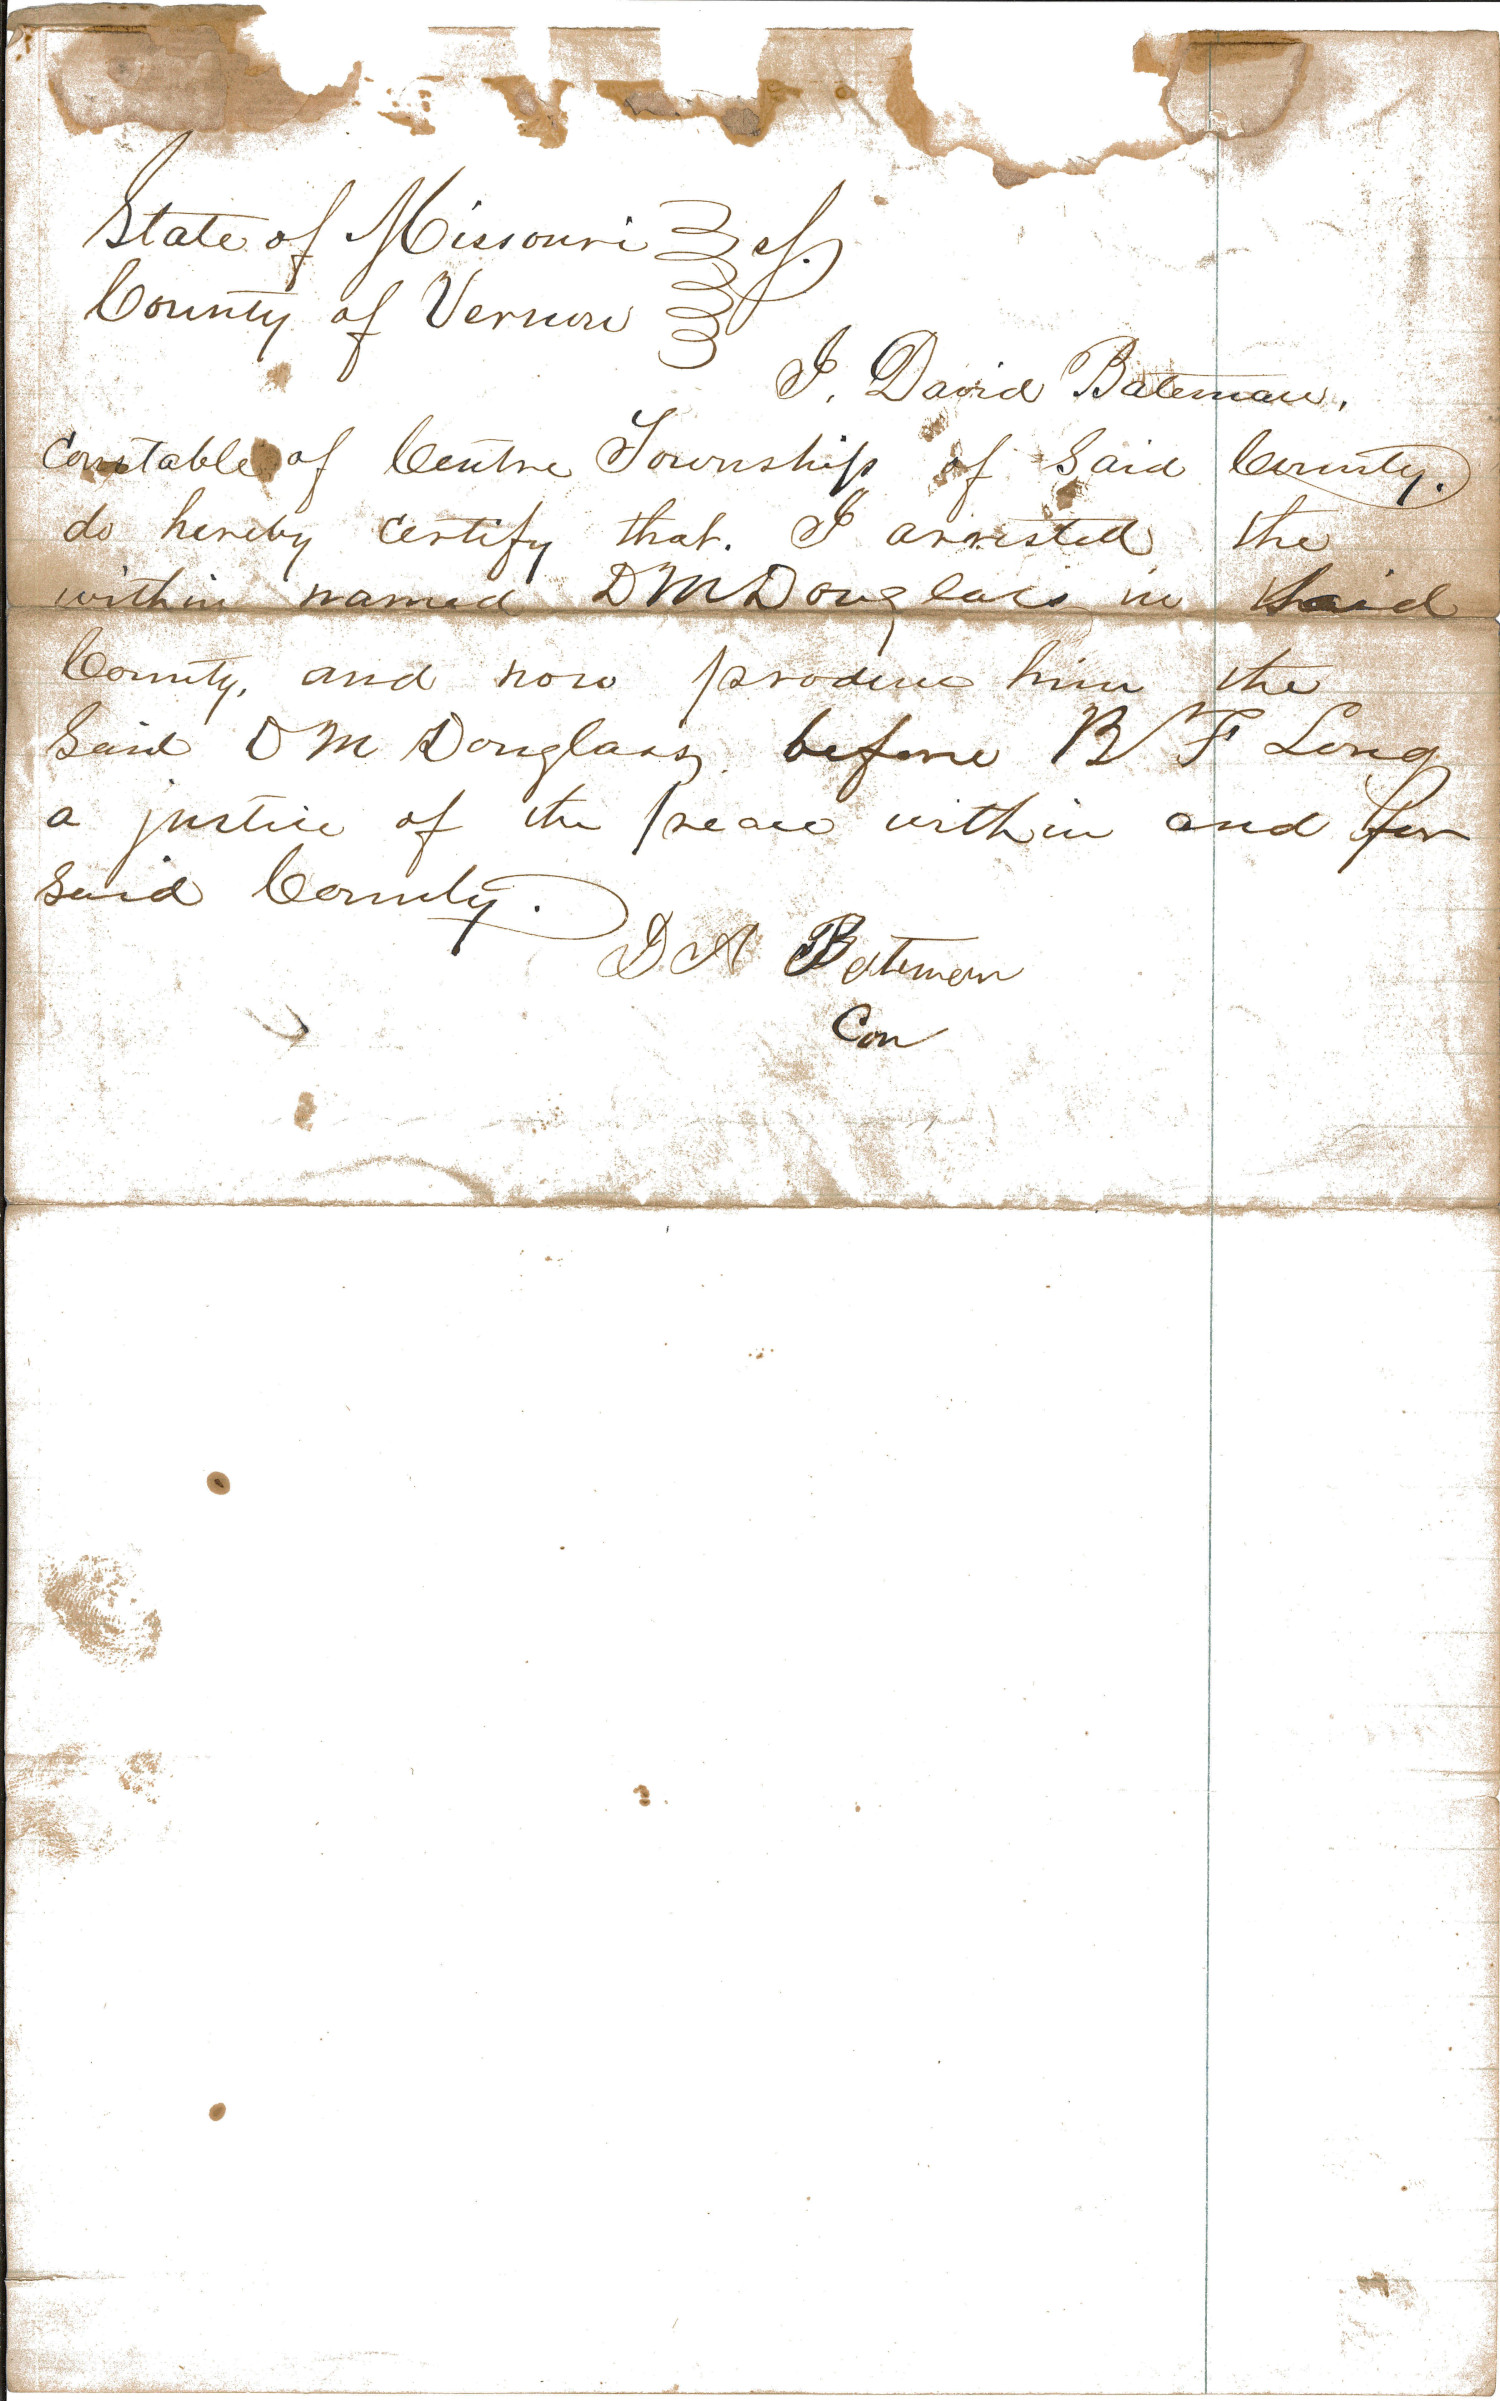 State of Missouri } ss.
County of Vernon }
I, David Bateman,
constable of Centre Township of Said County.
do hereby certify that. I arrested the
within named D M Douglass in said
County, and now produce him the
Said D M Douglass, before B F Long
a justice of the peace within and for
said County.
D A Bateman
Con